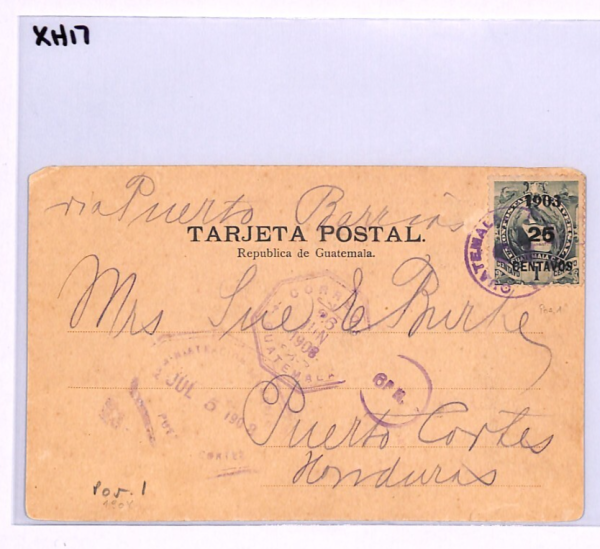 XH17
via Puerto Barrios
TARJETA POSTAL.
Republica de Guatemala.
1903
25
CENTAVOS
GUATEMALA
Mrs Sue E Burke
CORREOS
26
JUN
1908
GUATEMALA
JUL 5 1908
6 P.M.
Puerto Cortes
Honduras
Por. 1